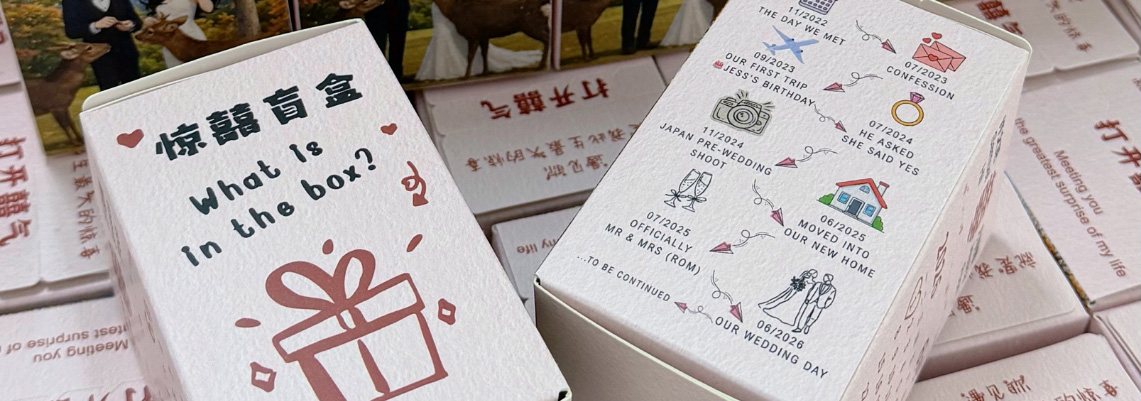 惊囍盲盒
What is
in the box?
11/2022
THE DAY WE MET
07/2023
CONFESSION
09/2023
OUR FIRST TRIP
JESS'S BIRTHDAY
07/2024
HE ASKED
SHE SAID YES
11/2024
JAPAN PRE-WEDDING
SHOOT
06/2025
MOVED INTO
OUR NEW HOME
07/2025
OFFICIALLY
MR & MRS (ROM)
...TO BE CONTINUED
06/2026
OUR WEDDING DAY
打开囍气
打开囍气
Meeting you
the greatest surprise of my life
Meeting you